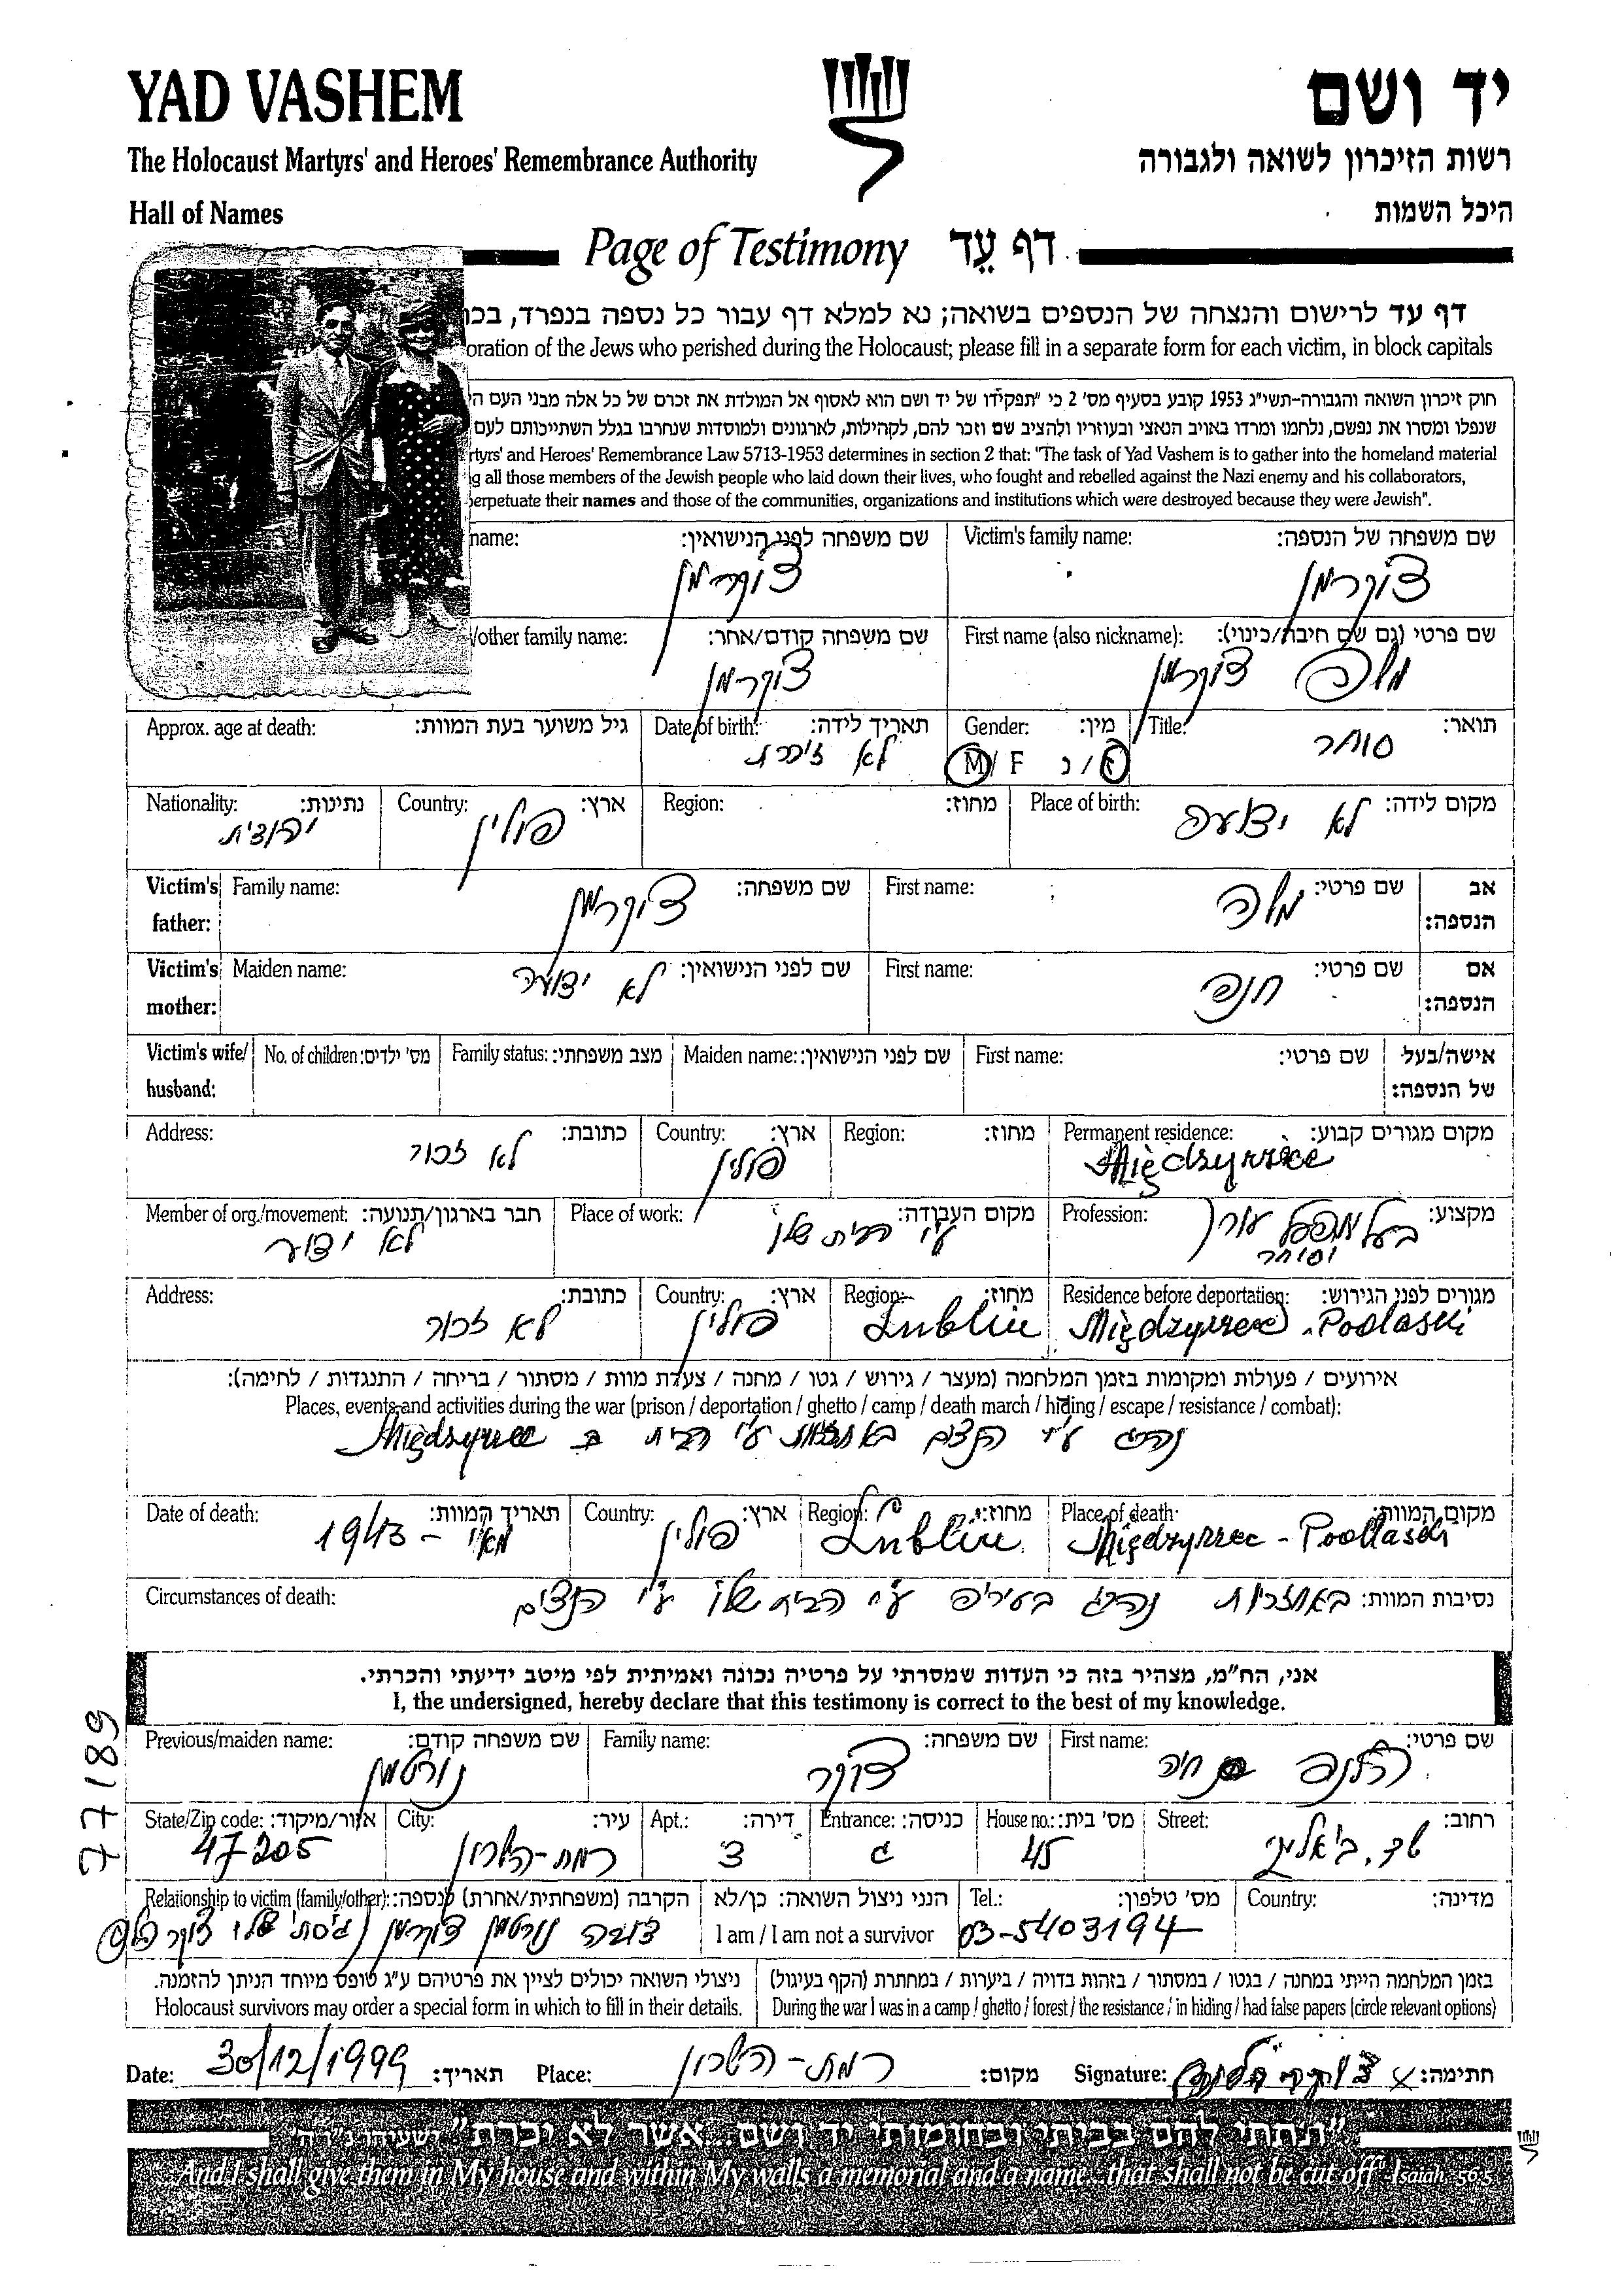 YAD VASHEM
יד ושם
The Holocaust Martyrs' and Heroes' Remembrance Authority
רשות הזיכרון לשואה ולגבורה
Hall of Names
היכל השמות
Page of Testimony דף עֵד
דף עד לרישום והנצחה של הנספים בשואה; נא למלא דף עבור כל נספה בנפרד, בכו
oration of the Jews who perished during the Holocaust; please fill in a separate form for each victim, in block capitals
חוק זיכרון השואה והגבורה-תשי"ג 1953 קובע בסעיף מס' 2 כי "תפקידו של יד ושם הוא לאסוף אל המולדת את זכרם של כל אלה מבני העם הי
שנפלו ומסרו את נפשם, נלחמו ומרדו באויב הנאצי ובעוזריו ולהציב שם וזכר להם, לקהילות, לארגונים ולמוסדות שנחרבו בגלל השתייכותם לעם
rtyrs' and Heroes' Remembrance Law 5713-1953 determines in section 2 that: "The task of Yad Vashem is to gather into the homeland material
g all those members of the Jewish people who laid down their lives, who fought and rebelled against the Nazi enemy and his collaborators,
perpetuate their names and those of the communities, organizations and institutions which were destroyed because they were Jewish".
שם משפחה של הנספה: Victim's family name: שם משפחה לפני הנישואין: name:
צוקרמן צוקרמן
שם פרטי (גם שם חיבה/כינוי): First name (also nickname): שם משפחה קודם/אחר: /other family name:
צוקרמן צוקרמן
תואר: Title: מין: Gender: תאריך לידה: Date of birth: גיל משוער בעת המוות: Approx. age at death:
סוחר ז / נ M / F לא זוכרת
מקום לידה: Place of birth: מחוז: Region: ארץ: Country: נתינות: Nationality:
לא ידועה פולין יהודית
אב הנספה: שם פרטי: First name: שם משפחה: Family name: Victim's father:
משה צוקרמן
אם הנספה: שם פרטי: First name: שם לפני הנישואין: Maiden name: Victim's mother:
חנה לא ידועה
אישה/בעל של הנספה: שם פרטי: First name: שם לפני הנישואין: Maiden name: מצב משפחתי: Family status: מס' ילדים: No. of children: Victim's wife/ husband:
מקום מגורים קבוע: Permanent residence: מחוז: Region: ארץ: Country: כתובת: Address:
Międzyrzec פולין לא זכור
מקצוע: Profession: מקום העבודה: Place of work: חבר בארגון/תנועה: Member of org./movement:
בעל מפעל עור ע"י הבית שלו לא ידוע
וסוחר
מגורים לפני הגירוש: Residence before deportation: מחוז: Region: ארץ: Country: כתובת: Address:
Międzyrzec Podlaski Lublin פולין לא זכור
אירועים / פעולות ומקומות בזמן המלחמה (מעצר / גירוש / גטו / מחנה / צעדת מוות / מסתור / בריחה / התנגדות / לחימה):
Places, events and activities during the war (prison / deportation / ghetto / camp / death march / hiding / escape / resistance / combat):
נהרג ע"י הנצים באכזריות ע"י הבית ב Międzyrzec
מקום המוות: Place of death: מחוז: Region: ארץ: Country: תאריך המוות: Date of death:
Międzyrzec - Podlaski Lublin פולין מאי - 1943
נסיבות המוות: Circumstances of death:
באכזריות נהרג בעירה ע"י הבית שלו ע"י הנצים
אני, הח"מ, מצהיר בזה כי העדות שמסרתי על פרטיה נכונה ואמיתית לפי מיטב ידיעתי והכרתי.
I, the undersigned, hereby declare that this testimony is correct to the best of my knowledge.
77189
שם פרטי: First name: שם משפחה: Family name: שם משפחה קודם: Previous/maiden name:
הלנה חיה צוקר נורטמן
רחוב: Street: מס' בית: House no.: כניסה: Entrance: דירה: Apt.: עיר: City: אזור/מיקוד: State/Zip code:
שד. ביאליק 45 ג 3 רמת-השרון 47205
מדינה: Country: מס' טלפון: Tel.: הנני ניצול השואה: כן/לא הקרבה (משפחתית/אחרת) לנספה: Relationship to victim (family/other):
03-5403194 I am / I am not a survivor נורטמן צוקרמן (גיסתי שלו צוקר הלנה
בזמן המלחמה הייתי במחנה / בגטו / במסתור / בזהות בדויה / ביערות / במחתרת (הקף בעיגול) ניצולי השואה יכולים לציין את פרטיהם ע"ג טופס מיוחד הניתן להזמנה.
During the war I was in a camp / ghetto / forest / the resistance / in hiding / had false papers (circle relevant options) Holocaust survivors may order a special form in which to fill in their details.
Date: 30/12/1999 תאריך: Place: רמת-השרון מקום: Signature: צוקר הלנה x חתימה:
"ונתתי להם בביתי ובחומותי יד ושם...אשר לא יכרת" ישעיהו נ"ו ה'
And I shall give them in My house and within My walls a memorial and a name...that shall not be cut off Isaiah 56:5